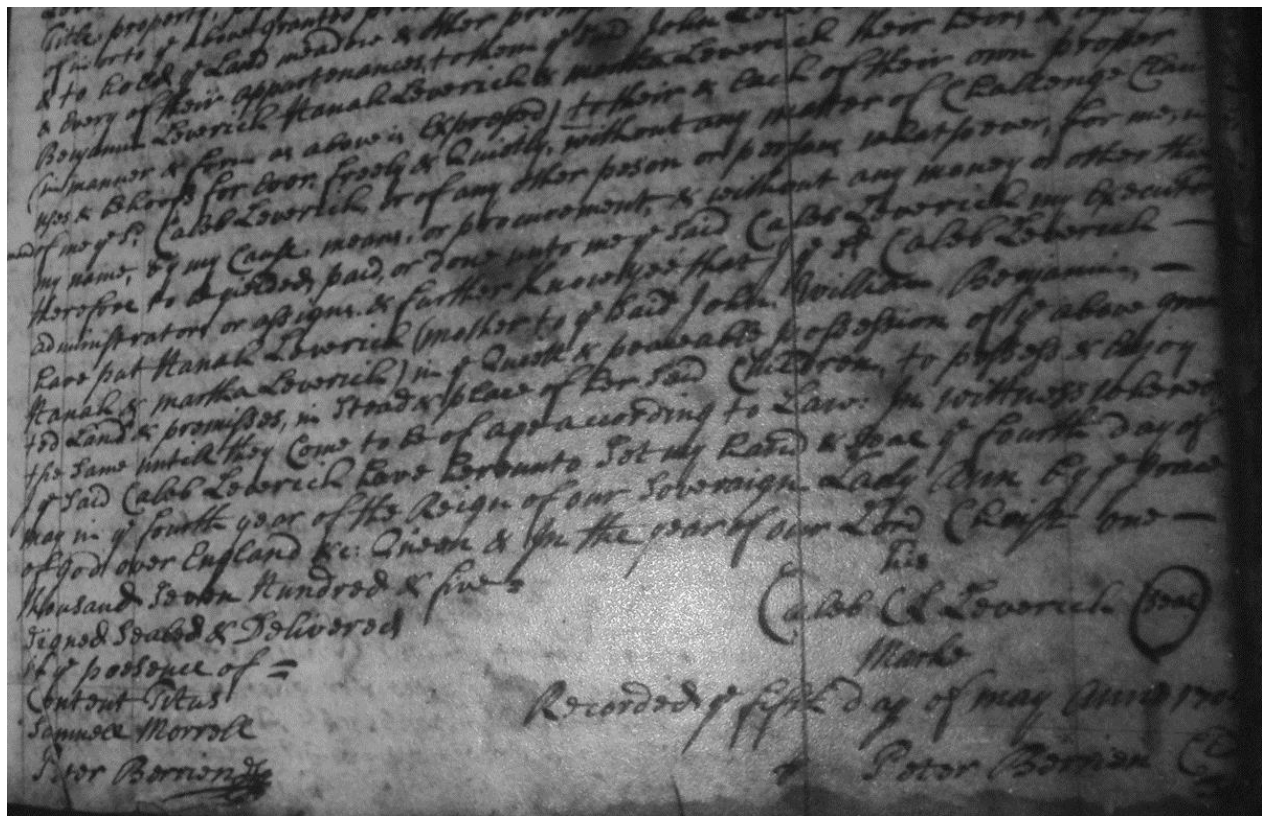 Title, property,
of in or to ye above granted
& to hold ye Land meadow & other
& Every of their appurtenances, to them ye said John
Benjamin Leverich Hanah Leverich & martha Leverich their heirs &
(in manner & form as above is Expressed) to their & Each of their own proper
uses & behoofs for Ever freely & Quietly, without any matter of Challenge Claim
of me ye sd Caleb Leverich or of any other peson or persons whatsoever, for me, in
my name, by my Cause, means, or procurement, & without any money or other thing
therefore to be yielded, paid, or Done unto me ye said Caleb Leverich my Executors
administrators or assigns. & further Know yee that I ye sd Caleb Leverich —
have put Hanah Leverich (mother to ye said John, William Benjamin, —
Hanah & martha Leverich) in ye Quiett & peaceable possession of ye above gran
ted Land & premisses, in Stead & place of her said Children, to possess & Enjoy
the same untill they Come to be of age according to Law: In wittness whereof
I ye said Caleb Leverich have hereunto Set my hand & Seal ye fourth day of
may in ye fourth year of the Reign of our Soveraign Lady Ann by ye grace
of god over England &c: Queen & In the year of our Lord Christ one —
thousand Seven Hundred & five =
Signed Sealed & Delivered
ye presence of =
Content Titus
Samuell Morrell
Peter Berrien
his
Caleb CL Leverich Seal
Marke
Recorded ye fifth day of may Anno
Peter Berrien